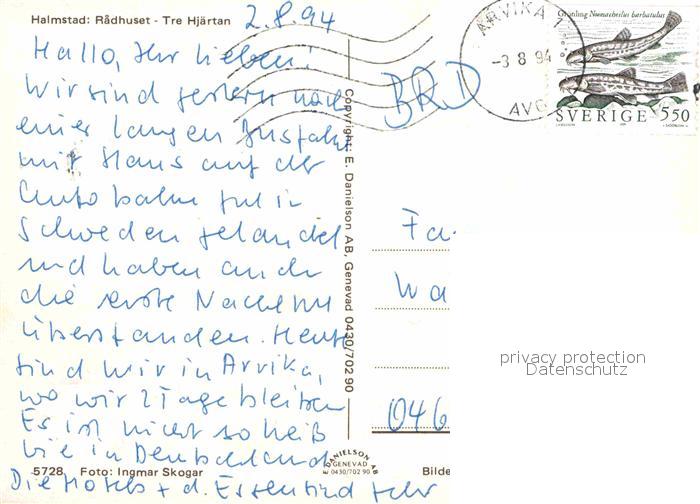 Halmstad: Rådhuset - Tre Hjärtan
2.8.94
Hallo, Ihr Lieben!
Wir sind gestern nach
einer langen Ausfahrt
mit Haus auf der
Autobahn gut in
Schweden gelandet
und haben auch
die erste Nacht gut
überstanden. Heute
sind wir in Arvika,
wo wir 2 Tage bleiben
Es ist nicht so heiß
wie in Deutschland
Die Hotels + d. Essen sind sehr
5728 Foto: Ingmar Skogar
Copyright: E. Danielson AB, Genevad 0430/702 90
E. DANIELSON AB
GENEVAD
0430/702 90
BRD
ARVIKA 1
-3 8 94
AVG
Grönling Noemacheilus barbatulus
SVERIGE 5.50
Fa.
Wa
046
Bilde
privacy protection
Datenschutz